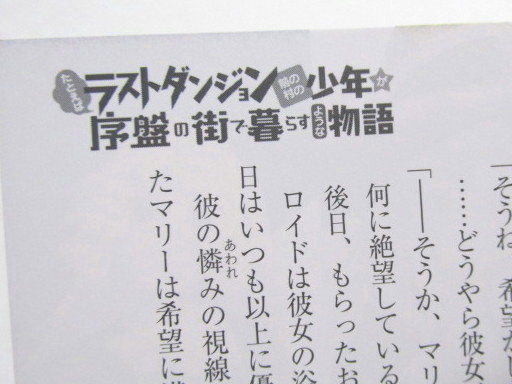 たとえば
ラストダンジョン前の村の少年が
序盤の街で暮らすような物語
「そうね、希望がし
……どうやら彼女
「――そうか、マリ
何に絶望している
後日、もらったお
ロイドは彼女の浴
日はいつも以上に優
彼の憐みの視線
あわれ
たマリーは希望に